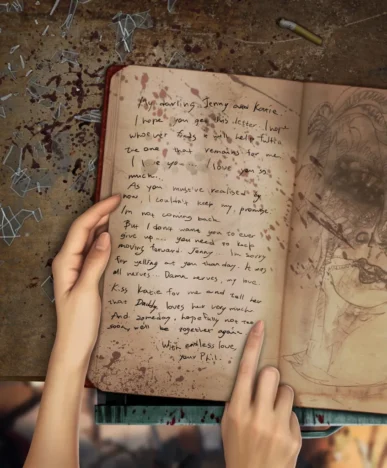 My darling Jenny and Katie.
I hope you get this letter. I hope
whoever finds it will help fulfil
the one that remains for me.
I love you... I love you so
much...
As you must've realised by
now, I couldn't keep my promise.
I'm not coming back.
But I don't want you to ever
give up... you need to keep
moving forward Jenny... I'm sorry
for yelling at you that day. It was
all nerves.. Damn nerves, my love.
Kiss Katie for me and tell her
that Daddy loves her very much.
And someday, hopefully not too
soon, we'll be together again
With endless love
- your Phil.